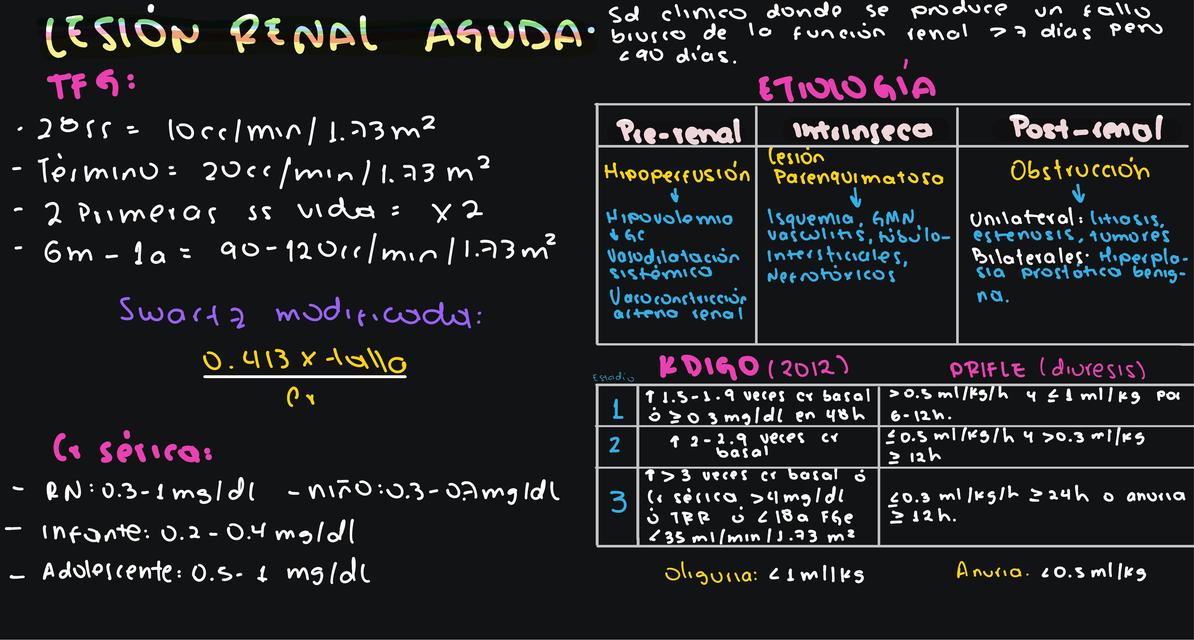 LESIÓN RENAL AGUDA.
Sd clinico donde se produce un fallo
brusco de la función renal >7 días pero
<90 días.
TFG:
· 28ss = 10cc/min/1.73m²
- Término = 20cc/min/1.73 m²
- 2 Primeras ss vida = x2
- 6m - 1a = 90-120cc/min/1.73m²
Swartz modificada:
0.413 x talla
Cr
Cr sérica:
- RN: 0.3-1mg/dl - niño: 0.3-0.7mg/dl
- Infante: 0.2-0.4 mg/dl
- Adolescente: 0.5-1 mg/dl
ETIOLOGÍA
Pre-renal
Hipoperfusión
↓
Hipovolemia
↓GC
Vasodilatación
sistémica
Vasoconstricción
arteria renal
Intrinseca
Lesión
Parenquimatosa
↓
Isquemia, GMN,
vasculitis, túbulo-
intersticiales,
Nefrotóxicos
Post-renal
Obstrucción
↓
Unilateral: litiasis,
estenosis, tumores
Bilaterales: Hiperpla-
sia prostática benig-
na.
Estadio
KDIGO (2012)
PRIFLE (diuresis)
1
↑1.5-1.9 veces cr basal
ó ≥0.3mg/dl en 48h
>0.5ml/kg/h y ≤1ml/kg por
6-12h.
2
↑ 2-2.9 veces cr
basal
≤0.5 ml/kg/h y >0.3ml/kg
≥12h
3
↑>3 veces cr basal ó
Cr sérica >4mg/dl
ó TRR ó <18a FGe
<35 ml/min/1.73 m²
≤0.3 ml/kg/h ≥24h o anuria
≥12h.
Oliguria: <1ml/kg
Anuria. <0.5ml/kg